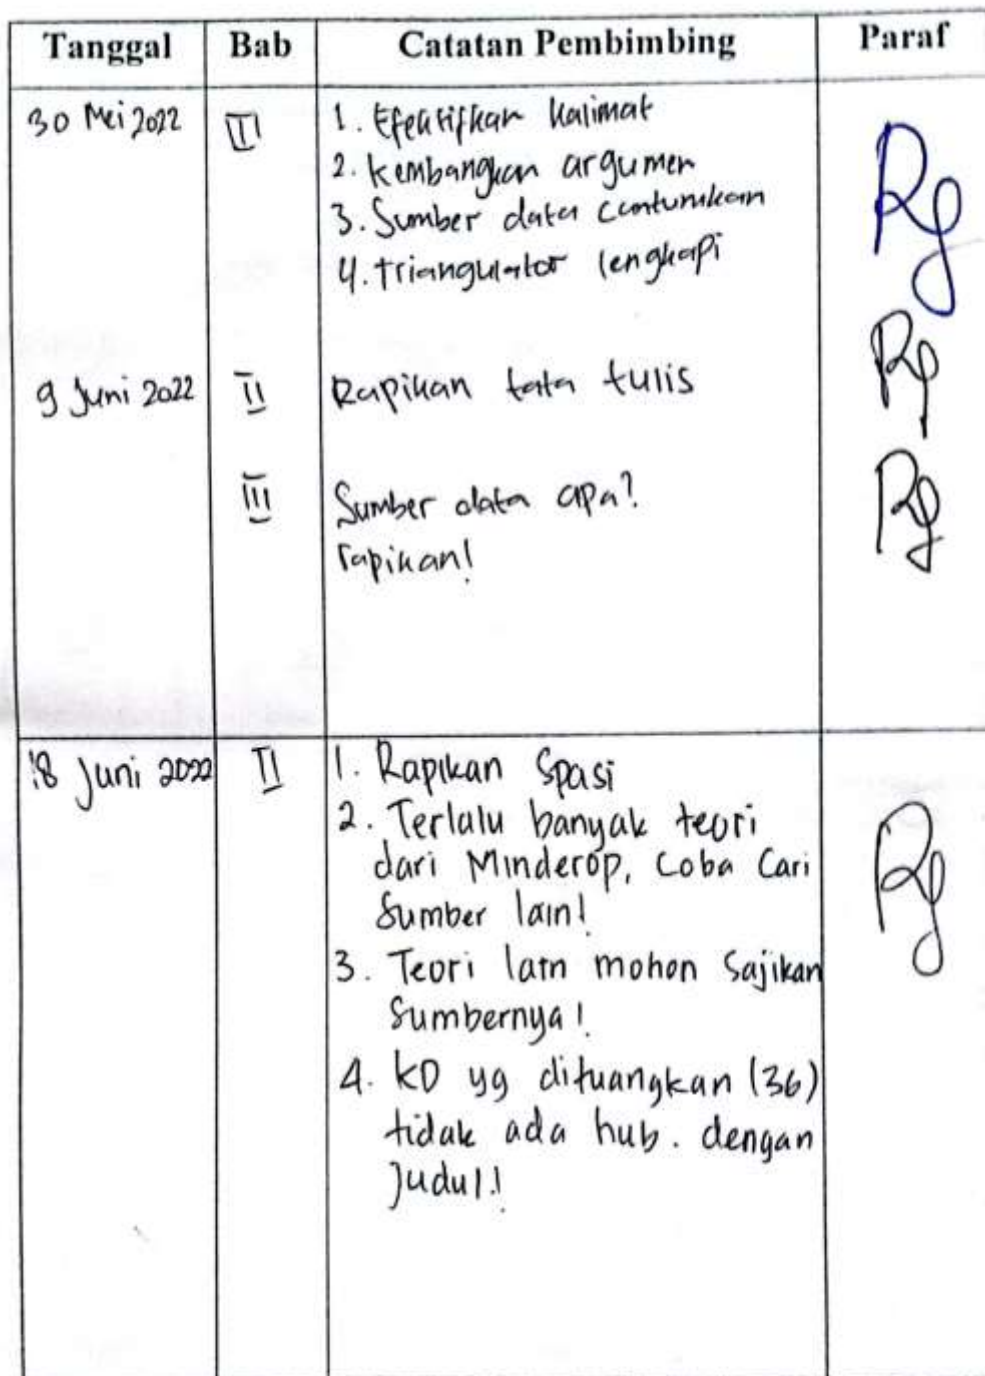 Tanggal Bab Catatan Pembimbing Paraf
30 Mei 2022 III 1. Efektifkan kalimat
2. kembangkan argumen
3. Sumber data cantumkan
4. triangulator lengkapi
9 Juni 2022 II Rapikan tata tulis
III Sumber data apa?
rapikan!
18 Juni 2022 II 1. Rapikan Spasi
2. Terlalu banyak teori
dari Minderop, Coba Cari
Sumber lain!
3. Teori lain mohon Sajikan
Sumbernya!
4. KD yg dituangkan (36)
tidak ada hub. dengan
Judul.!